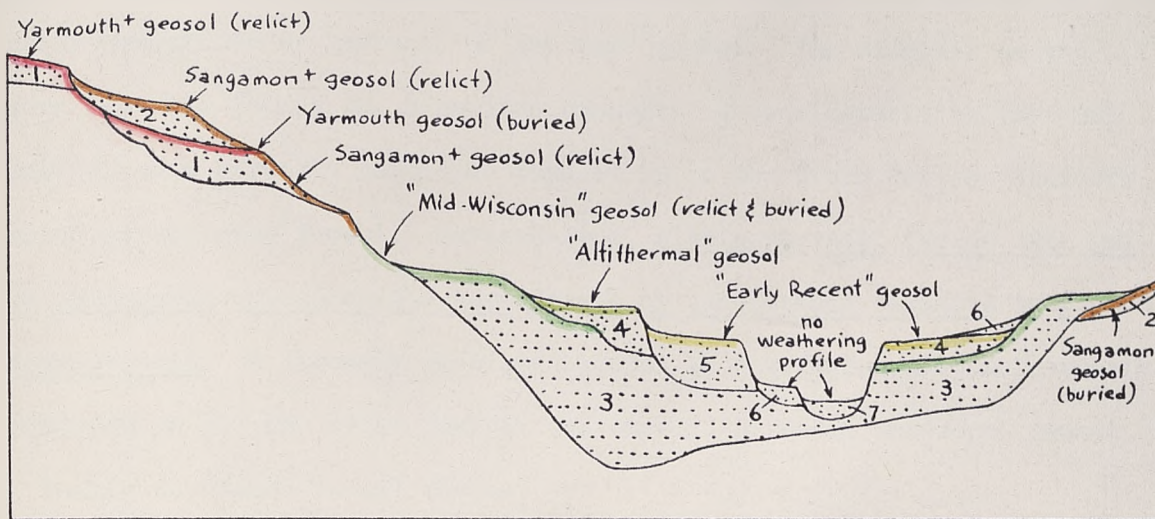 Yarmouth+ geosol (relict)
1
Sangamon+ geosol (relict)
2
Yarmouth geosol (buried)
1
Sangamon+ geosol (relict)
"Mid-Wisconsin" geosol (relict & buried)
"Altithermal" geosol
"Early Recent" geosol
no
weathering
profile
6
2
4
4
5
Sangamon
geosol
(buried)
3
3
6
7